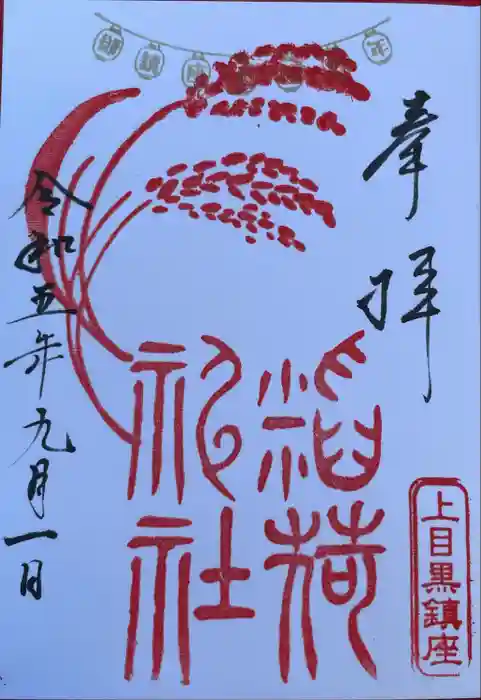 奉拝
上目黒鎮座
稲荷
神社
令和五年九月一日